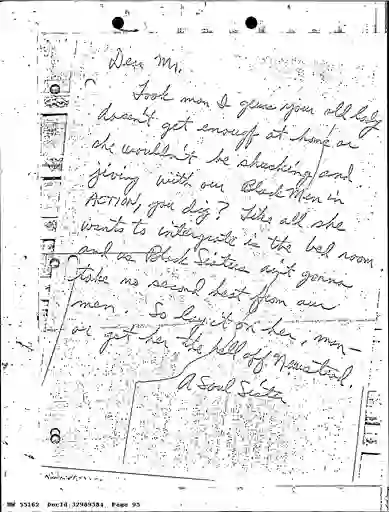 Dear Mr.
Look man I guess your old lady
doesn't get enough at home or
she wouldn't be shucking and
jiving with our Black Men in
ACTION, you dig? Like all she
wants to intergrate is the bed room
and us Black Sisters ain't gonna
take no second best from our
men. So lay it on her, man –
or get her the hell off Newstead.
A Soul Sister
NW 55162 DocId:32989584 Page 95